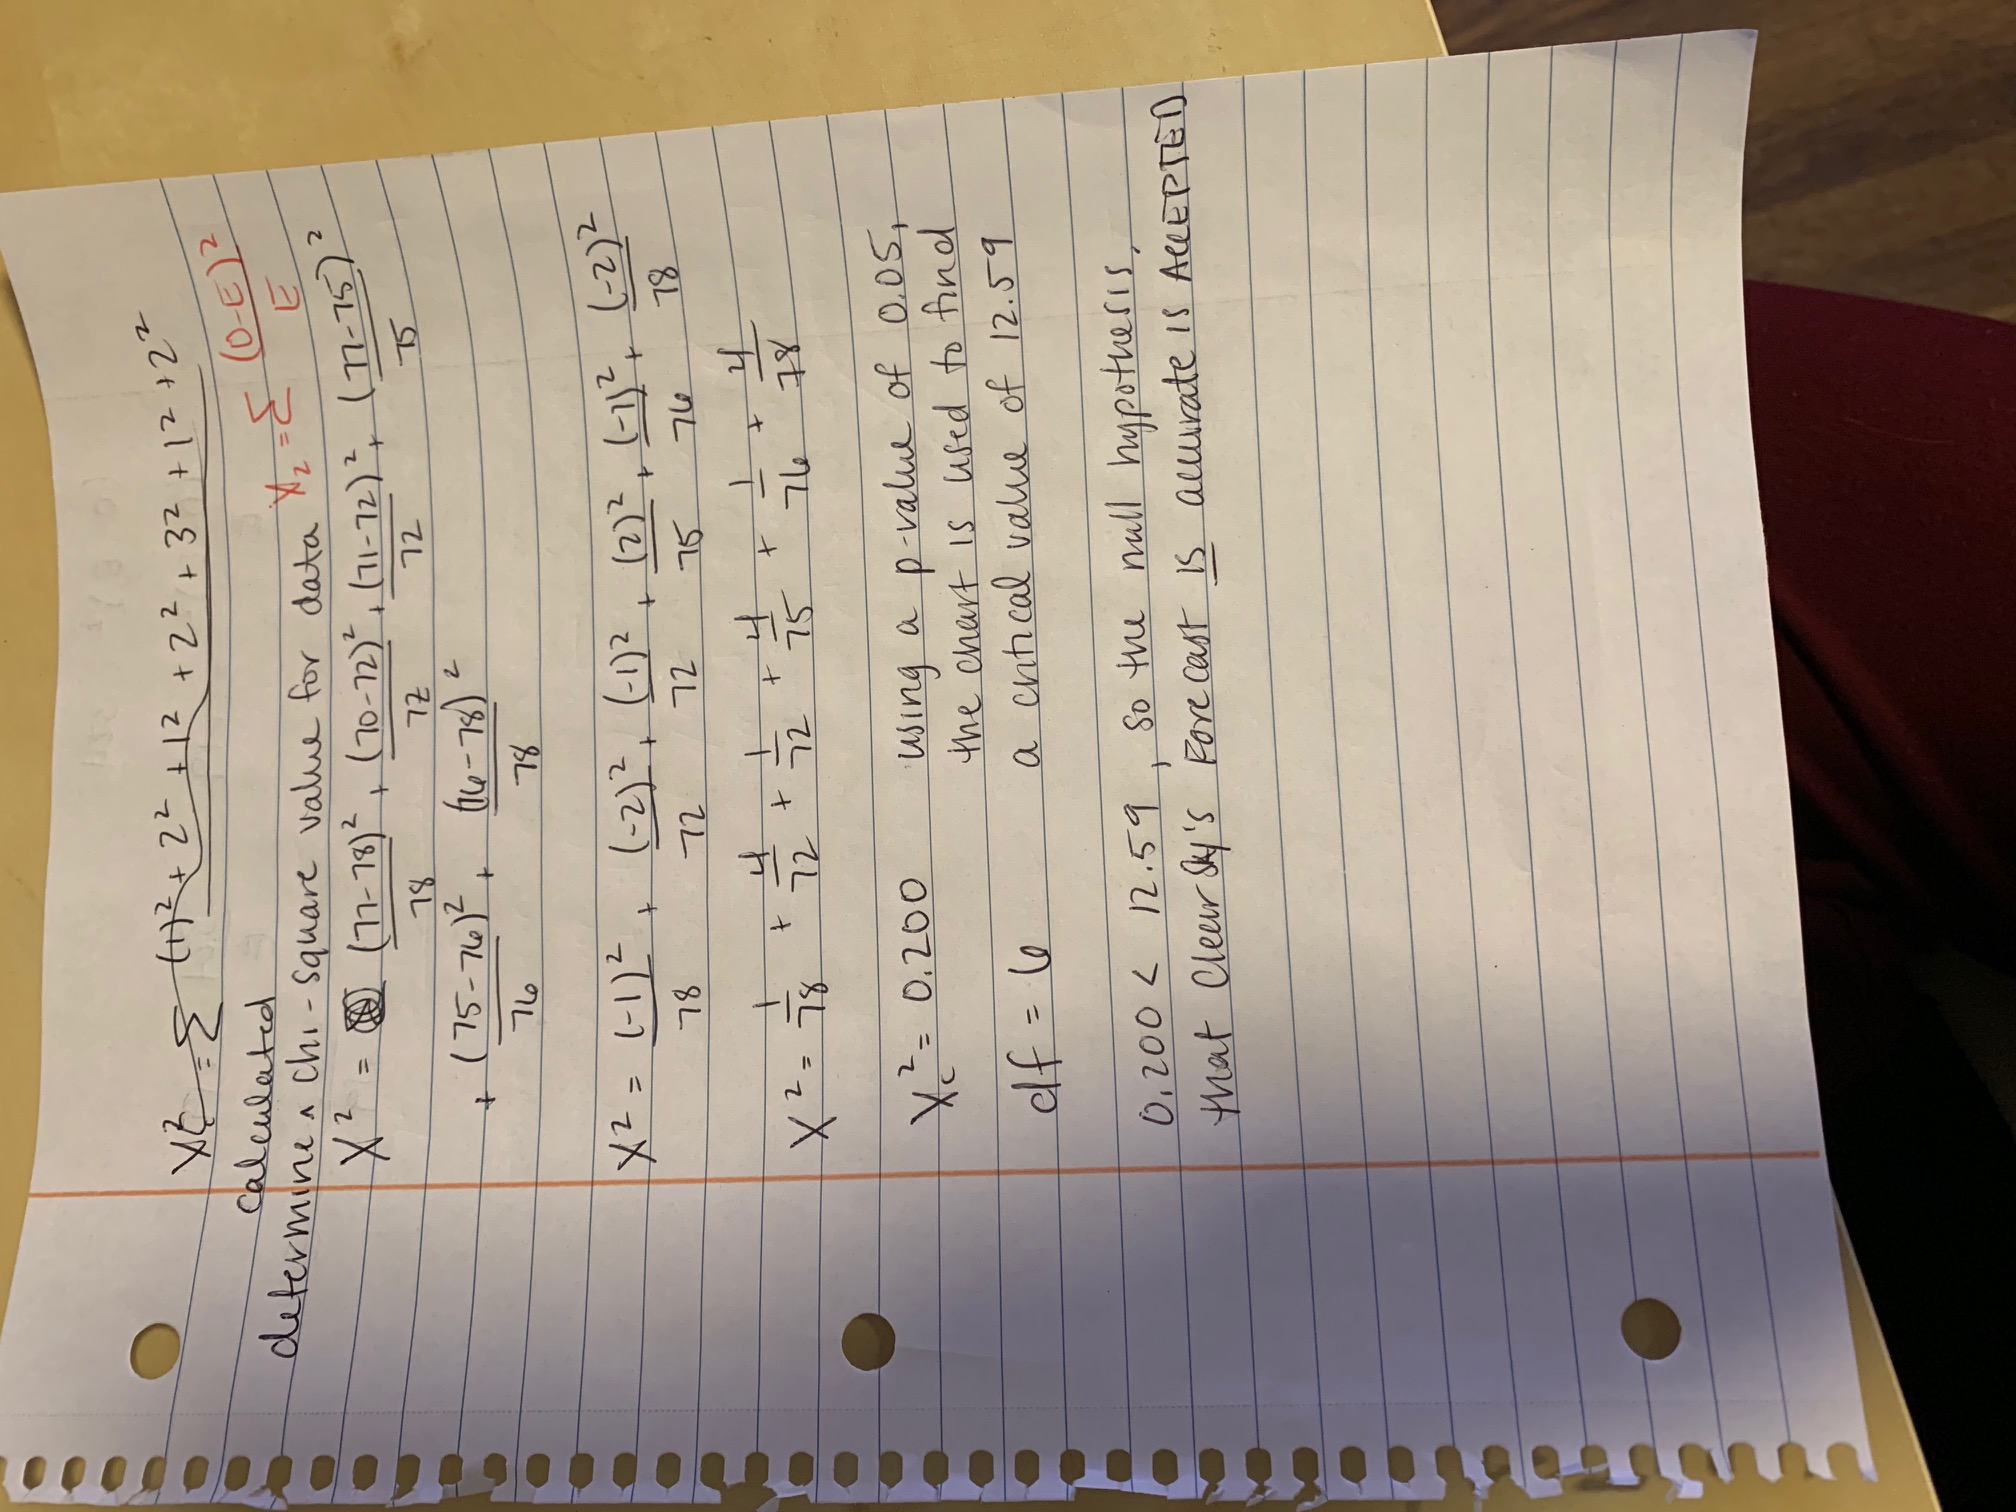 X²c = Σ (1)² + 2² + 1² + 2² + 3² + 1² + 2²
calculated
determine ^ chi-square value for data X₂ = Σ (O-E)² / E
X² = (77-78)²/78 + (70-72)²/72 + (71-72)²/72 + (77-75)²/75
+ (75-76)²/76 + (76-78)²/78
X² = (-1)²/78 + (-2)²/72 + (-1)²/72 + (2)²/75 + (-1)²/76 + (-2)²/78
X² = 1/78 + 4/72 + 1/72 + 4/75 + 1/76 + 4/78
X²c = 0.200 using a p-value of 0.05,
the chart is used to find
df = 6 a critical value of 12.59
0.200 < 12.59, so the null hypothesis,
that ClearSky's Forecast IS accurate is ACCEPTED